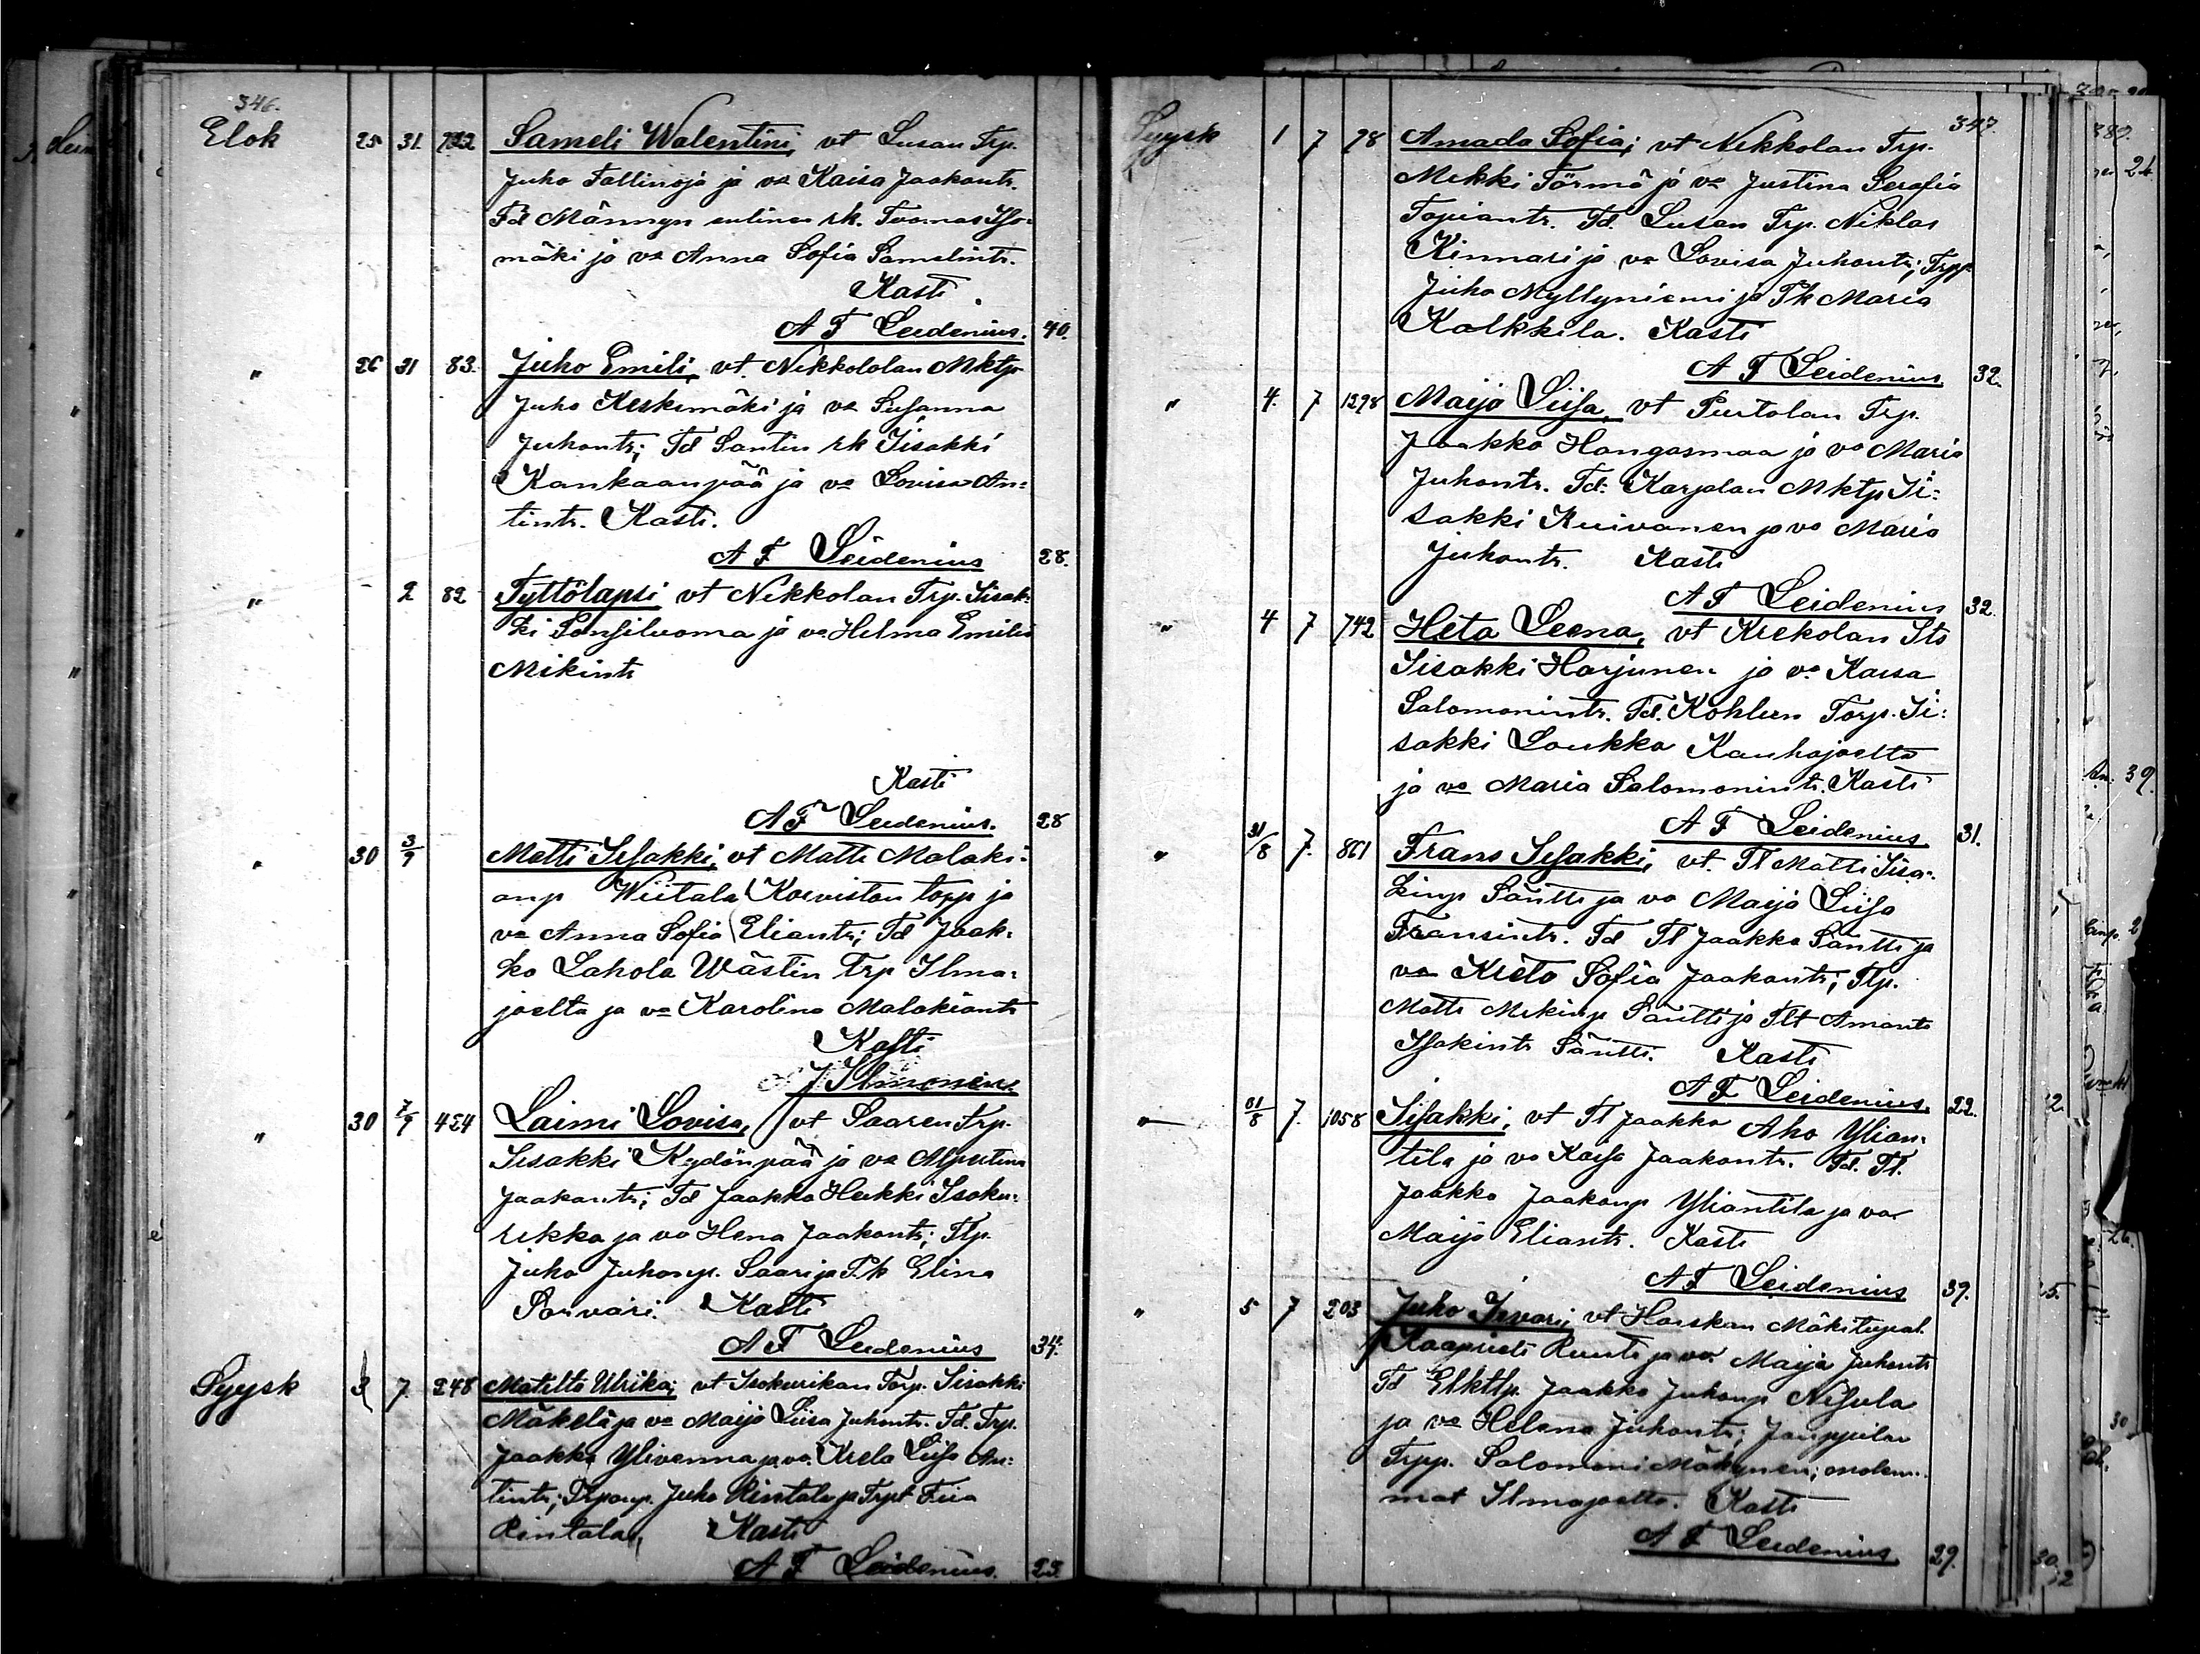 346.
Elok 25 31. 722 Sameli Walentini, vt Lusan Trp.
Juho Tallinoja ja vo Kaisa Jaakontr.
Td Männyn entinen rk. Tuomas Ylo-
mäki ja vo Anna Sofia Samelintr.
Kasti
A F Leidenius. 40.
" 26 31 83. Juho Emili, vt. Nikkolan Mktp
Juho Keskimäki ja vo Susanna
Juhontr; Td Santin rk Iisakki
Kankaanpää ja vo Lovisa An=
tintr. Kasti.
A F Leidenius 28.
" 2 82 Tyttölapsi vt Nikkolan Trp. Iisak-
ki ja vo Helma Emilia
Mikintr
Kasti
A F Leidenius. 28
" 30 3/9 Matti Iisakki, vt Matti Malaki-
anp Wiitala Koiviston torp ja
vo Anna Sofia Eliantr; Td Jaak-
ko Lahola Wästin Trp Ilma-
joelta ja vo Karolina Malakiantr
Kasti
J Ilmonen.
" 30 7/9 424 Laimi Lovisa, vt Saaren Trp.
Iisakki Kydönpää ja vo Alpertina
Jaakontr; Td Jaakko Heikki Isoku-
rikka ja vo Hena Jaakontr; Tlp.
Juho Juhonp. Saari ja Pk Elina
Porvari. Kasti
A F Leidenius 34.
Syysk 3 7. 248 Matilta Ulrika; vt Isokurikan Torp. Iisakki
Mäkelä ja vo Maija Liisa Juhontr. Td. Trp.
Jaakko Ylivenna ja vo. Kreeta Liisa An-
tintr; Juho Rintala ja Trpt Fiia
Rintala, Kasti
A F Leidenius. 23.
347.
Syysk 1 7 78 Amada Sofia; vt Nikkolan Trp.
Mikki Törmä ja vo Justina Serafia
Topiantr. Td. Lusan Trp. Niklas
Kinnari ja vo Lovisa Juhontr; Trpp
Juho Myllyniemi ja Pk Maria
Kalkkila. Kasti
A F Leidenius 32.
" 4. 7 1298 Maija Liisa, vt Purtolan Trp.
Jaakko Hangasmaa ja vo Maria
Juhontr. Td. Karjalan Mktp Ii=
sakki Kuivanen ja vo Maria
Juhontr. Kasti
A F Leidenius 32.
" 4 7 742 Heta Leena, vt Krekolan Its
Iisakki Harjunen ja vo Kaisa
Salomonintr. Td. Kohlun Torp. Ii=
sakki Loukko Kauhajoelta
ja vo Maria Salomonintr. Kasti
A F Leidenius. 31.
" 31/8 7. 861 Frans Iisakki, vt. Tl Matti Iisa-
kinp Säntti ja vo Maija Liisa
Fransintr. Td Tl Jaakko Säntti ja
vo Kreta Sofia Jaakontr; Tlp.
Matti Mikinp Säntti ja Tlt Amanta
Isakintr Säntti. Kasti
A F Leidenius. 22.
" 31/8 7. 1058 Iisakki, vt Tl Jaakko Aho Ylian-
tila ja vo Kaisa Jaakontr. Td. Tl.
Jaakko Jaakonp Yliantila ja vo
Maija Eliantr. Kasti
A F Leidenius 37.
" 5 7 203 Juho Iivari; vt Harskan Mäkitupal.
Kaaprieli Ruuti ja vo Maija Juhontr
Td Elktlp. Jaakko Juhonp Nisula
ja vo Helena Juhontr; Jauppilan
Trpp. Salomoni Mäkynen; molem-
mat Ilmajoelta. Kasti
A F Leidenius 29.